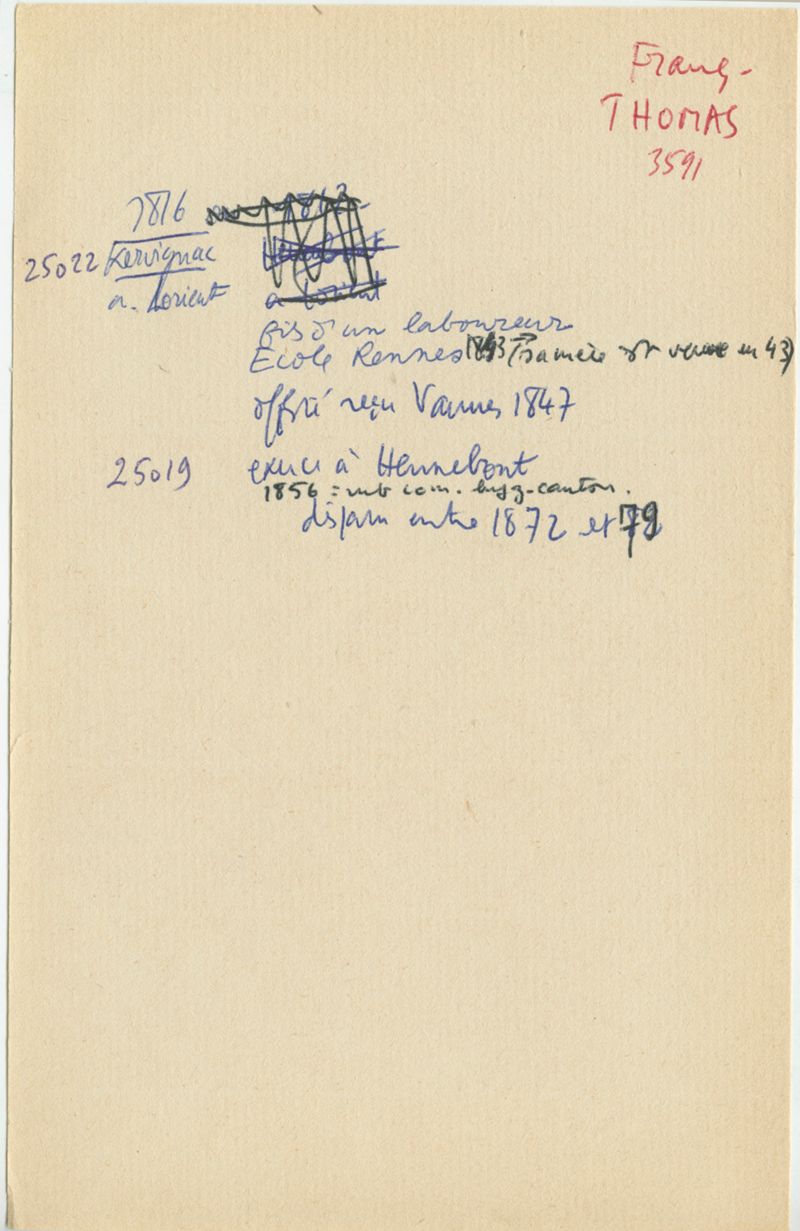 Franç-
THOMAS
3591
1816
25022 Kervignac
a. Lorient
fils d'un laboureur
Ecole Rennes 1843 → (sa mère est veuve en 43)
offsté reçu Vannes 1847
25019 exerce à Hennebont
1856 = mb com. hyg-canton.
dispam entre 1872 et 79